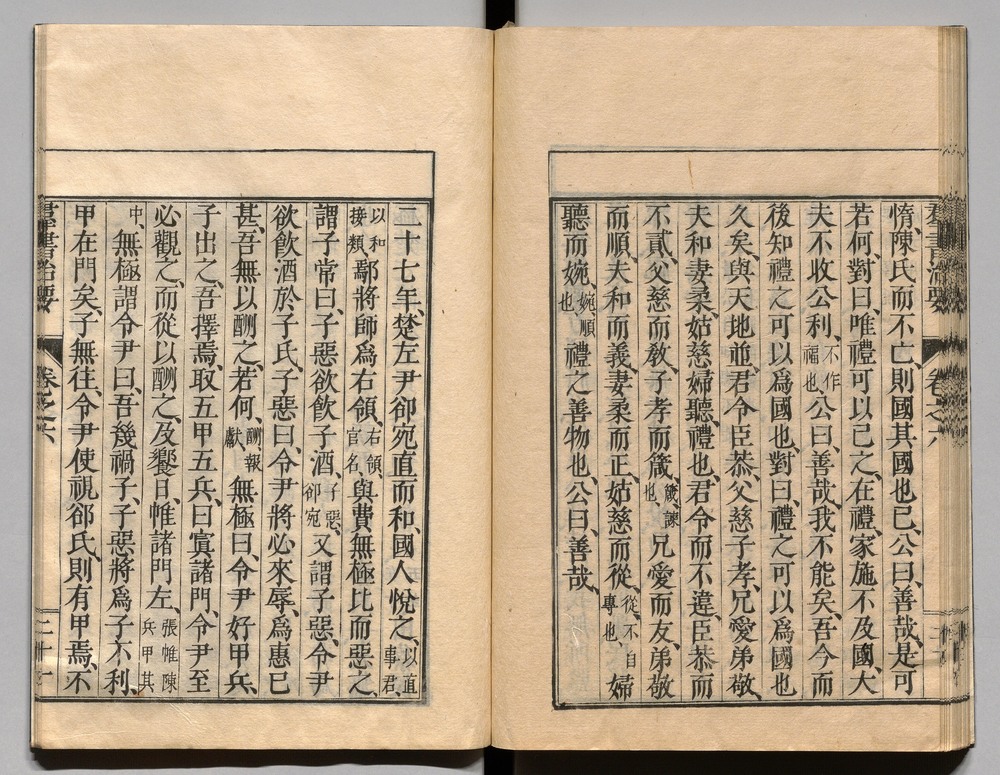 惰、陳氏而不亡、則國其國也已、公曰、善哉、是可
若何、對曰、唯禮可以已之、在禮、家施不及國、大
夫不收公利、不作福也公曰、善哉、我不能矣、吾今而
後知禮之可以爲國也、對曰、禮之可以爲國也
久矣、與天地並、君令臣恭、父慈子孝、兄愛弟敬、
夫和妻柔、姑慈婦聽、禮也、君令而不違、臣恭而
不貳、父慈而敎、子孝而箴、箴、諫也兄愛而友、弟敬
而順、夫和而義、妻柔而正、姑慈而從、從、不自專也、婦
聽而婉、婉、順也禮之善物也、公曰、善哉、
二十七年、楚左尹郤宛直而和、國人悅之、以直事君、
以和接類鄢將師爲右領、右領、官名與費無極比而惡之、
謂子常曰、子惡欲飮子酒、子惡、郤宛又謂子惡、令尹
欲飮酒於子氏、子惡曰、令尹將必來辱、爲惠已
甚、吾無以酬之、若何、酬、報獻無極曰、令尹好甲兵、
子出之、吾擇焉、取五甲五兵、曰、寘諸門、令尹至
必觀之、而從以酬之、及饗日、帷諸門左、張帷陳兵甲其
中、無極謂令尹曰、吾幾禍子、子惡將爲子不利、
甲在門矣、子無往、令尹使視郤氏、則有甲焉、不
羣書治要
卷之六
二十一